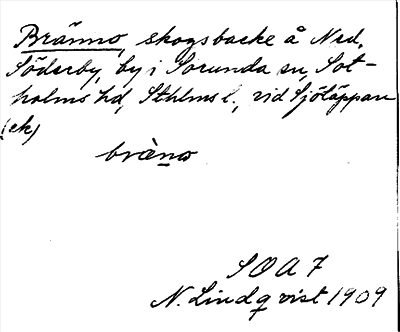 Bränno, skogsbacke å Ned.
Söderby, by i Sorunda sn, Sot-
holms hd, Sthlms l., vid Sjötäppan
(ek)
bràno
SOA 7
N. Lindqvist 1909